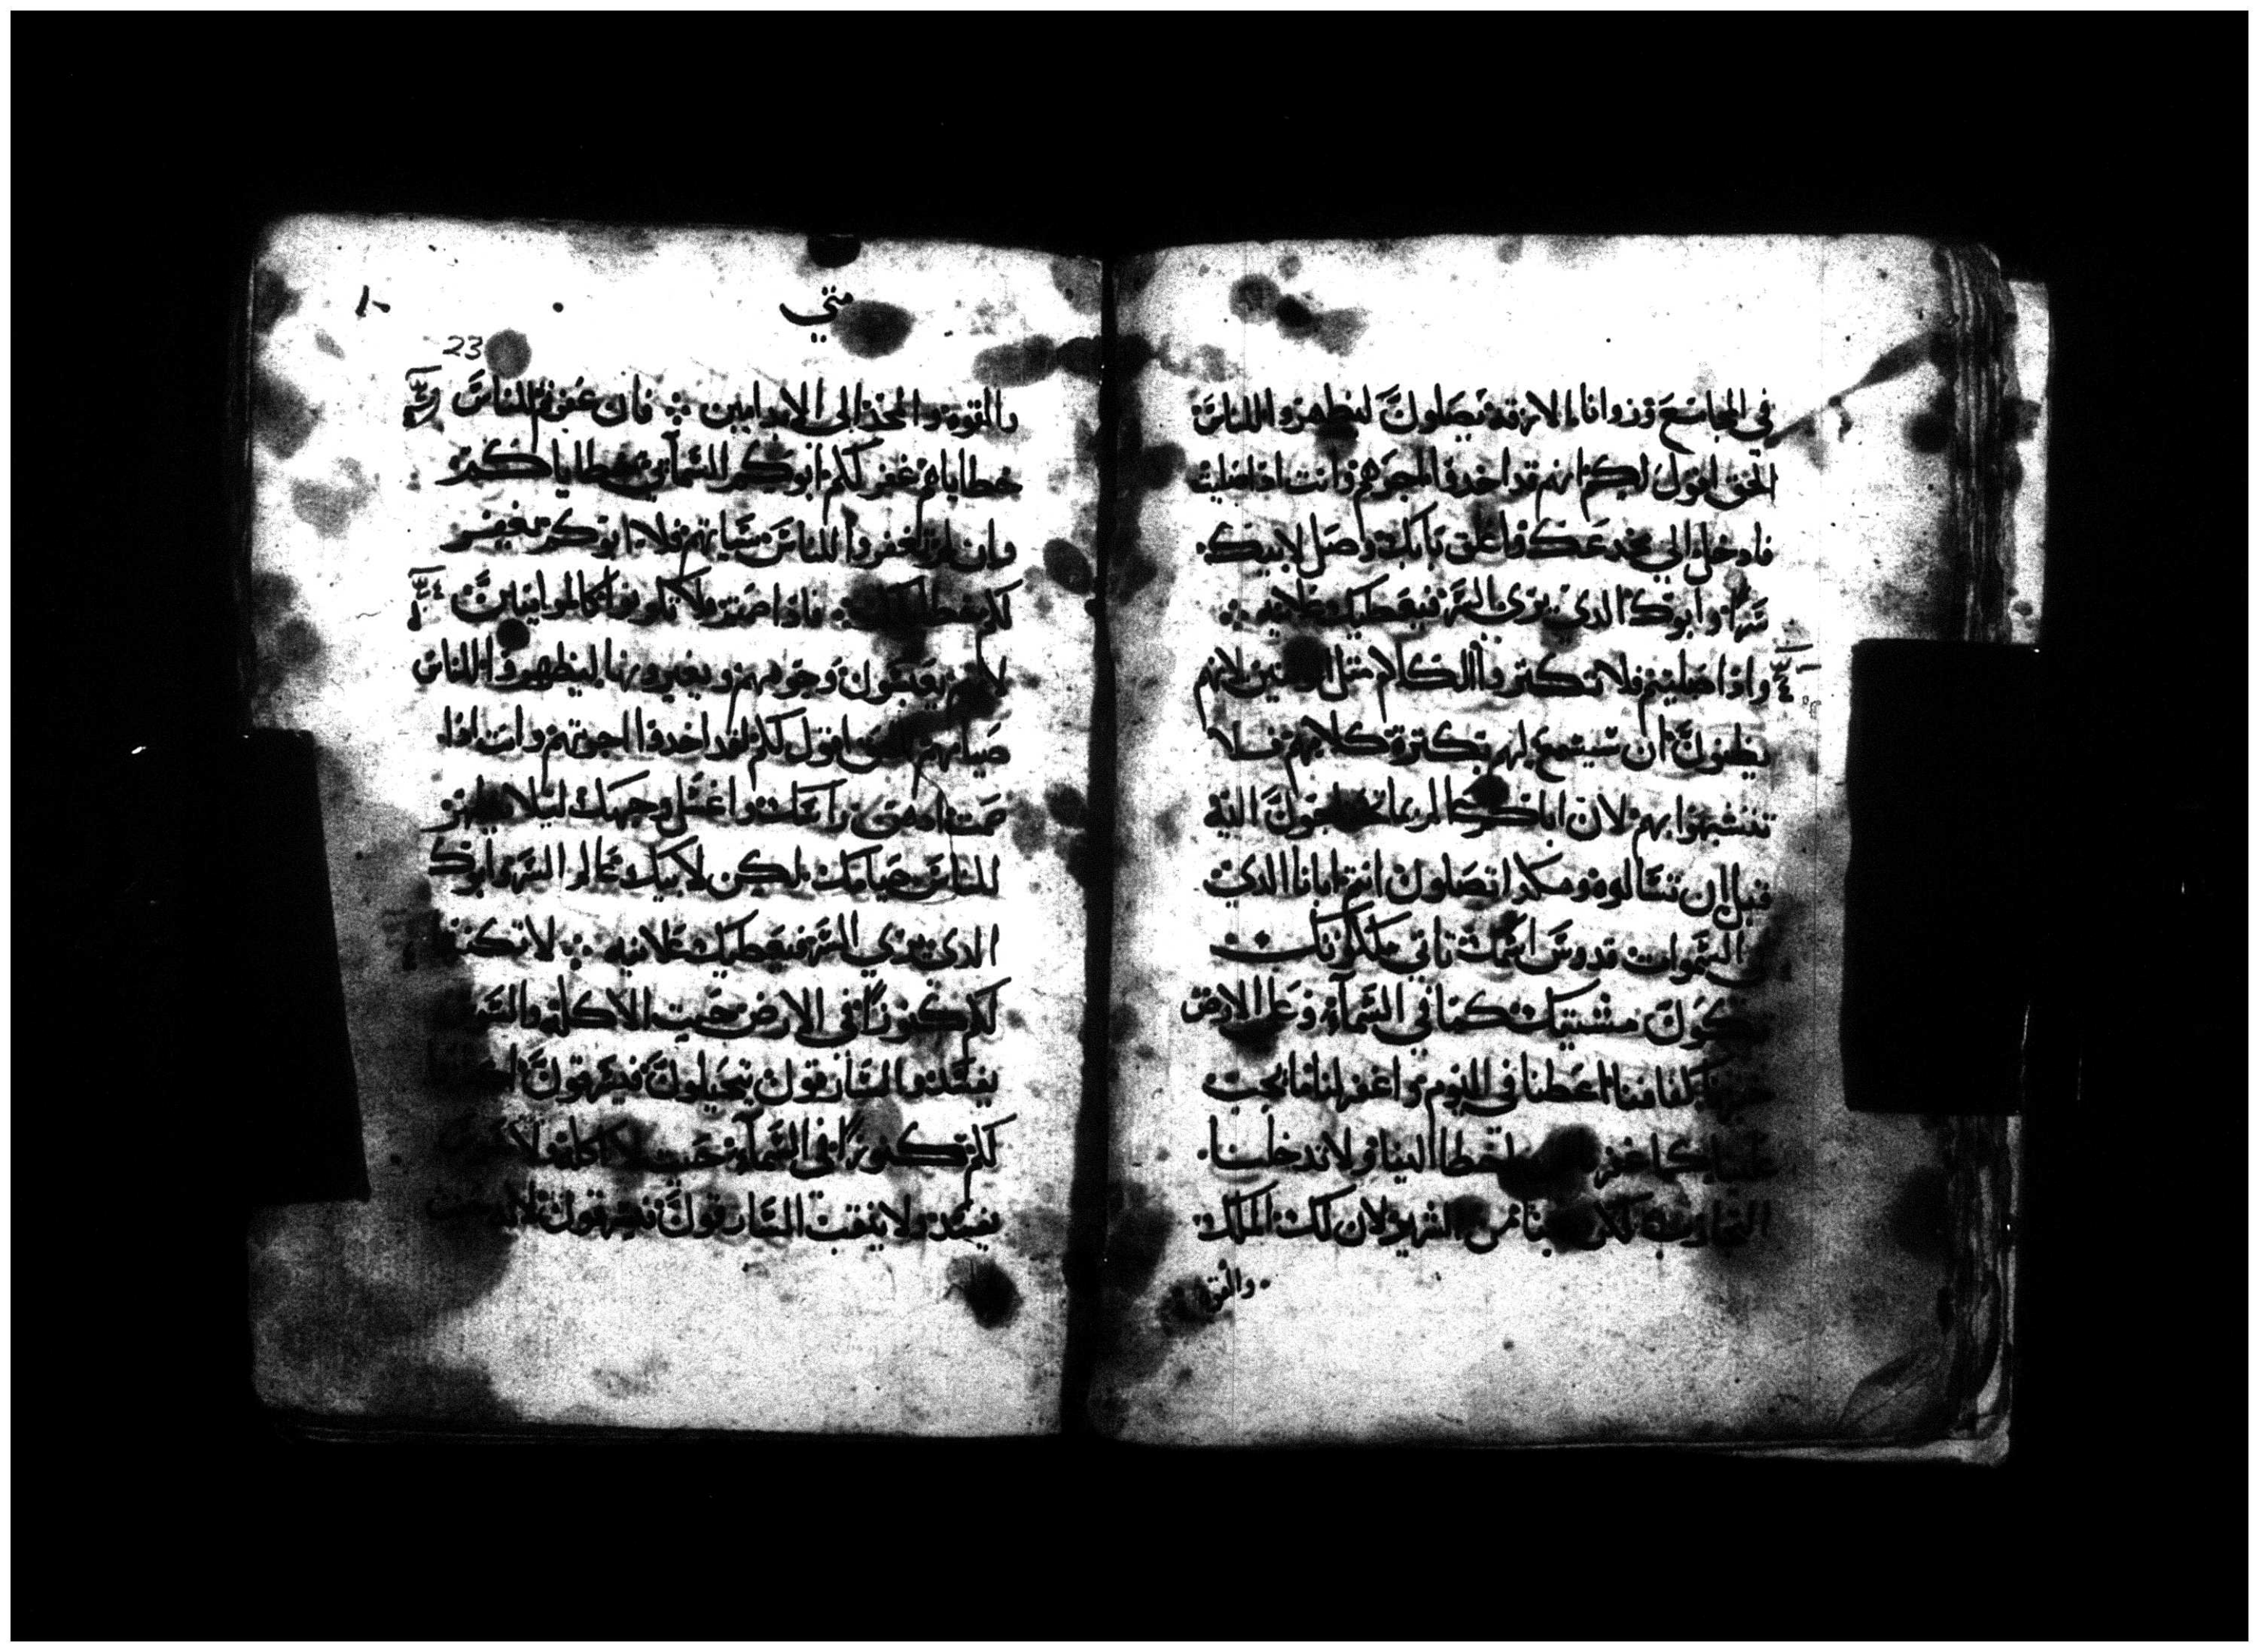 في المجامع وزوايا الازقه يصلون ليظهروا للناس
الحق اقول لكم انهم قد اخدوا اجرهم وانت اذا صليت
فادخل الي مخدعك واغلق بابك وصل لابيك
سرا وابوك الدي يري السر فيعطيك علانيه
واذا صليتم فلا تكثروا الكلام مثل لانهم
يظنون ان سيسمع لهم بكثرة كلامهم فلا
تتشبهوا بهم لان اباكم عالم بما اليه
قبل ان تسالوه وهكدا تصلون انتم ابانا الدي
السموات قدوس اسمك تاتي ملكوتك
تكون مشيتك كما في السماء وعلي الارض
خبزنا كفافنا اعطنا في اليوم واغفر لنا ما يجب
علينا كما نغفر لمن اخطا الينا ولا تدخلنا
التجارب لكن نجنا من الشرير لان لك الملك
والقوه
متي
١٠
23
والقوه والمجد الي الابد امين فان غفرتم للناس
خطاياهم غفر لكم ابوكم السماي خطاياكم
وان لم تغفروا للناس سياتهم فلا ابوكم يغفر
لكم خطاياكم فاذا صمتم فلا تكونوا كالمراييين
لانهم يعبسون وجوههم ويغيرونها ليظهروا للناس
صيامهم الحق اقول لكم لقد اخدوا اجرتهم وانت اذا
صمت ادهن راسك واغسل وجهك ليلا يظهر
للناس صيامك لكن لابيك عالم السر وابوك
الدي يري السر فيعطيك علانيه لا تكنزوا
لكم كنوزا في الارض حيث الاكله والسوس
يفسد والسارقون يتحيلون فيسرقون اكنزوا
لكم كنوزا في السماء حيث لا اكله ولا سوس
يفسد ولا ينقب السارقون فيسرقون لانه حيث